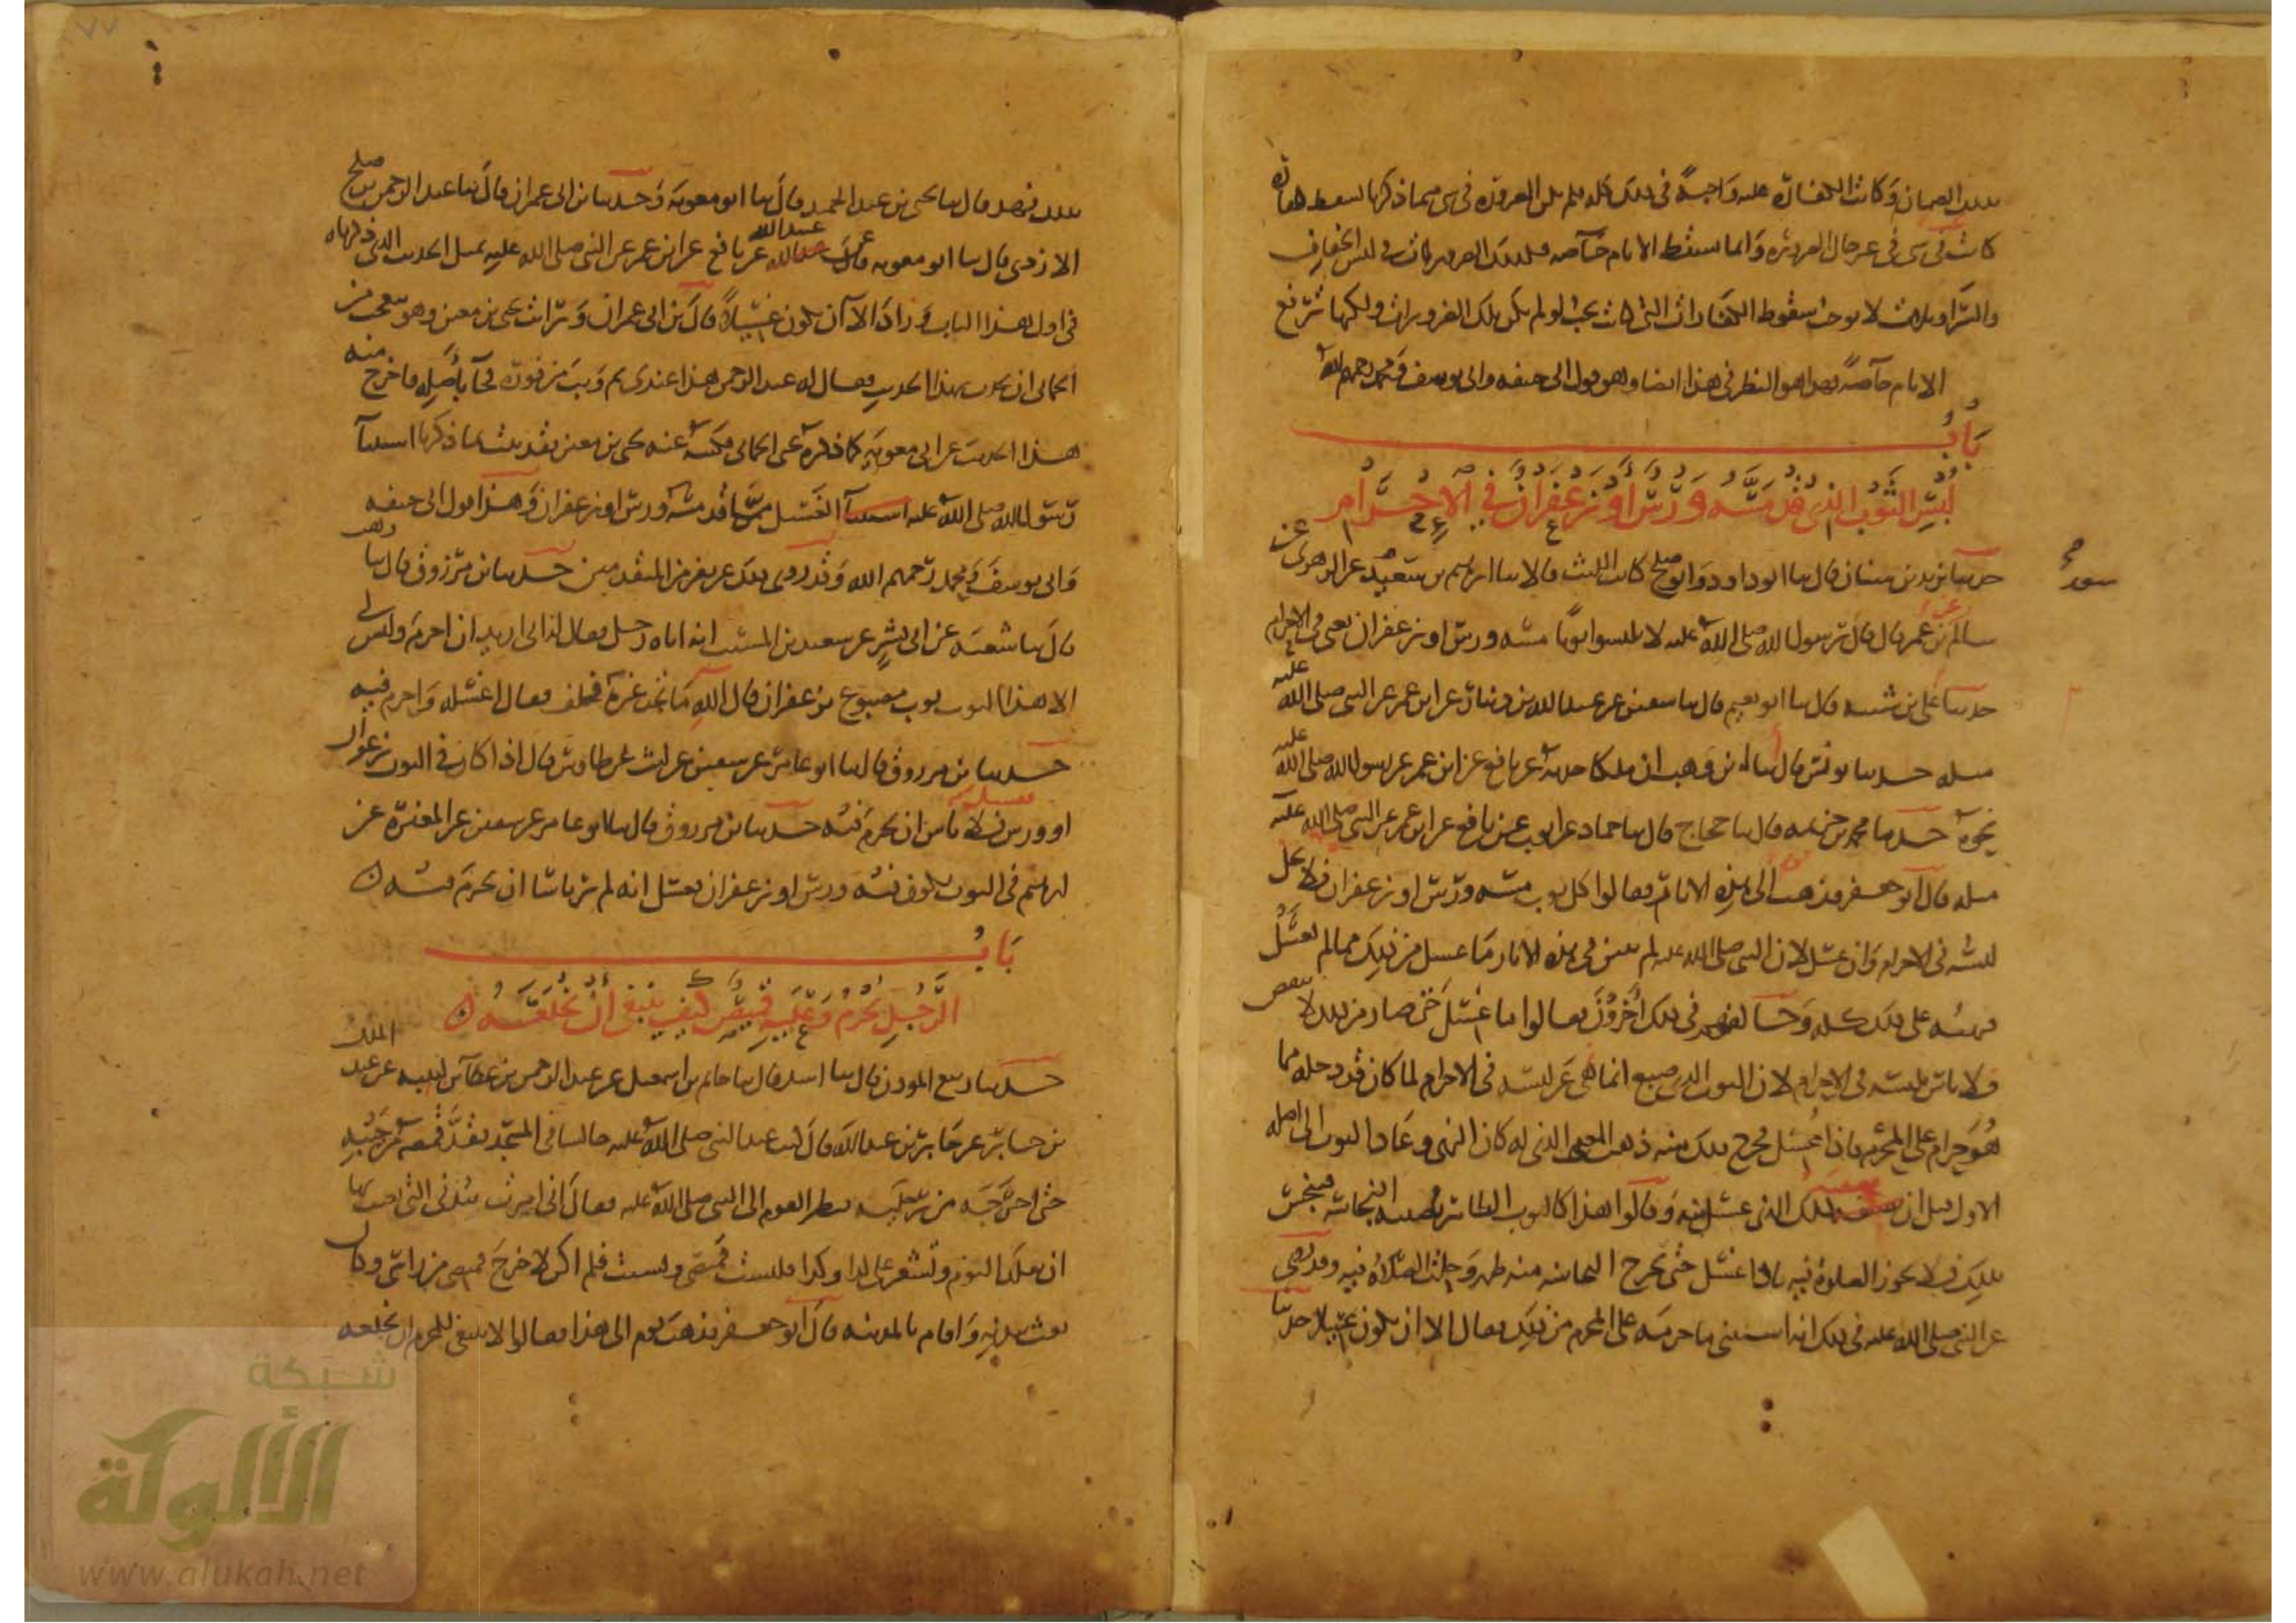 بذلك الضمان وكانت الكفارة عليه واجبة في ذلك كله فلم تكن الضرورة في شي مما ذكرنا تسقط كفارة
كانت في شي في غير حال الضرورة وانما تسقط الاثام خاصة فكذلك الضرورات في لبس الخفاف
والسراويلات لا يوجب سقوط الكفارات التي كانت تجب لو لم يكن تلك الضرورات ولكنها ترفع
الاثام خاصة فهذا هو النظر في هذا ايضا وهو قول ابي حنيفة وابي يوسف ومحمد رحمهم الله
باب
لبس الثوب الذي قد مسه ورس او زعفران في الاحرام
حدثنا يزيد بن سنان قال ثنا ابو داود وابو صلح كاتب الليث قالا ثنا ابرهيم بن سعيد عن الزهري عن
سالم عن ابن عمر قال قال رسول الله صلى الله عليه لا تلبسوا ثوبا مسه ورس او زعفران يعني في الاحرام
حدثنا علي بن شيبة قال ثنا ابو نعيم قال ثنا سفين عن عبد الله بن دينار عن ابن عمر عن النبي صلى الله عليه
مثله حدثنا يونس قال انا ابن وهب ان ملكا حدثه عن نافع عن ابن عمر عن رسول الله صلى الله عليه
نحوه حدثنا محمد بن خزيمة قال ثنا حجاج قال ثنا حماد عن ايوب عن نافع عن ابن عمر عن النبي صلى الله عليه
مثله قال ابو جعفر فذهب الى هذه الاثار فقالوا كل ثوب مسه ورس او زعفران فلا يحل
لبسه في الاحرام وان غسل لان النبي صلى الله عليه لم يبين في هذه الاثار ما غسل من ذلك مما لم يغسل
فنهيه على ذلك كله وخالفهم في ذلك آخرون فقالوا ما غسل حتى صار من ذلك لا ينفض
فلا باس بلبسه في الاحرام لان الثوب الذي صبغ انما نهي عن لبسه في الاحرام لما كان قد دخله مما
هو حرام على المحرم فاذا غسل فخرج ذلك منه ذهب المعنى الذي له كان النهي وعاد الثوب الى اصله
الاول قبل ان يصيبه ذلك الذي غسل منه وقالوا هذا كالثوب الطاهر تصيبه النجاسة فينجس
بذلك فلا تجوز الصلوة فيه فاذا غسل حتى تخرج النجاسة منه طهر وحلت الصلاة فيه وقد روي
عن النبي صلى الله عليه في ذلك انه استثنى مما حرمه على المحرم من ذلك فقال الا ان يكون غسيلا حدثنا
بذلك فهد قال ثنا يحيى بن عبد الحميد قال ثنا ابو معوية وحدثنا ابن ابي عمران قال ثنا عبد الرحمن بن صلح
الازدي قال ثنا ابو معوية عن عبيد الله عن نافع عن ابن عمر عن النبي صلى الله عليه بمثل الحديث الذي ذكرناه
في اول هذا الباب وزاد الا ان يكون غسيلا قال ابن ابي عمران ورايت يحيى بن معين وهو يتعجب من
الحماني ان يحدث بهذا الحديث فقال له عبد الرحمن هذا عندي ثم وثب من فوره فجآ باصله فاخرج منه
هذا الحديث عن ابي معوية كما ذكره يحيى الحماني فكتبه عنه يحيى بن معين فقد ثبت بما ذكرنا استثنآ
رسول الله صلى الله عليه الغسيل مما قد مسه ورس او زعفران وهذا قول ابي حنيفة
وابي يوسف ومحمد رحمهم الله وقد روي ذلك عن نفر من المتقدمين حدثنا ابن مرزوق قال ثنا وهب
قال ثنا شعبة عن ابي بشر عن سعيد بن المسيب انه اتاه رجل فقال له اني اريد ان احرم وليس لي
الا هذا الثوب ثوب مصبوغ بزعفران قال الله ما تجد غيره فحلف فقال اغسله واحرم فيه
حدثنا ابن مرزوق قال ثنا ابو عامر عن سفين عن ليث عن طاوس قال اذا كان في الثوب زعفران
او ورس فغسل فلا باس ان يحرم فيه حدثنا ابن مرزوق قال ثنا ابو عامر عن سفين عن المغيرة عن
ابرهيم في الثوب يكون فيه ورس او زعفران فغسل انه لم ير باسا ان يحرم فيه
باب
الرجل يحرم وعليه قميص كيف ينبغي ان يخلعه
حدثنا ربيع المؤذن قال ثنا اسد قال ثنا حاتم بن اسمعيل عن عبد الرحمن بن عطآ بن لبيبة عن عبد الملك
بن جابر عن جابر بن عبد الله قال كنت عند النبي صلى الله عليه جالسا في المسجد فقد قميصه من جيبه
حتى اخرجه من رجليه فنظر القوم الى النبي صلى الله عليه فقال اني امرت ببدني التي بعثت بها
ان تقلد اليوم وتشعر على كذا وكذا فلبست قميصي ونسيت فلم اكن لاخرج قميصي من راسي وكان
بعث ببدنه واقام بالمدينة قال ابو جعفر فذهب قوم الى هذا فقالوا لا ينبغي للمحرم ان يخلعه
شبكة
الألوكة
www.alukah.net